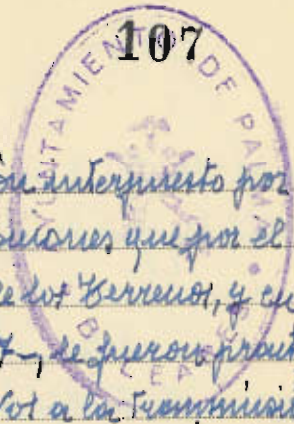 107
AYUNTAMIENTO DE PALMA
BALEARES
ón interpuesto por
ciones que por el
de los Terrenos, y en
7-, le fueron practi
vos a la transmisión